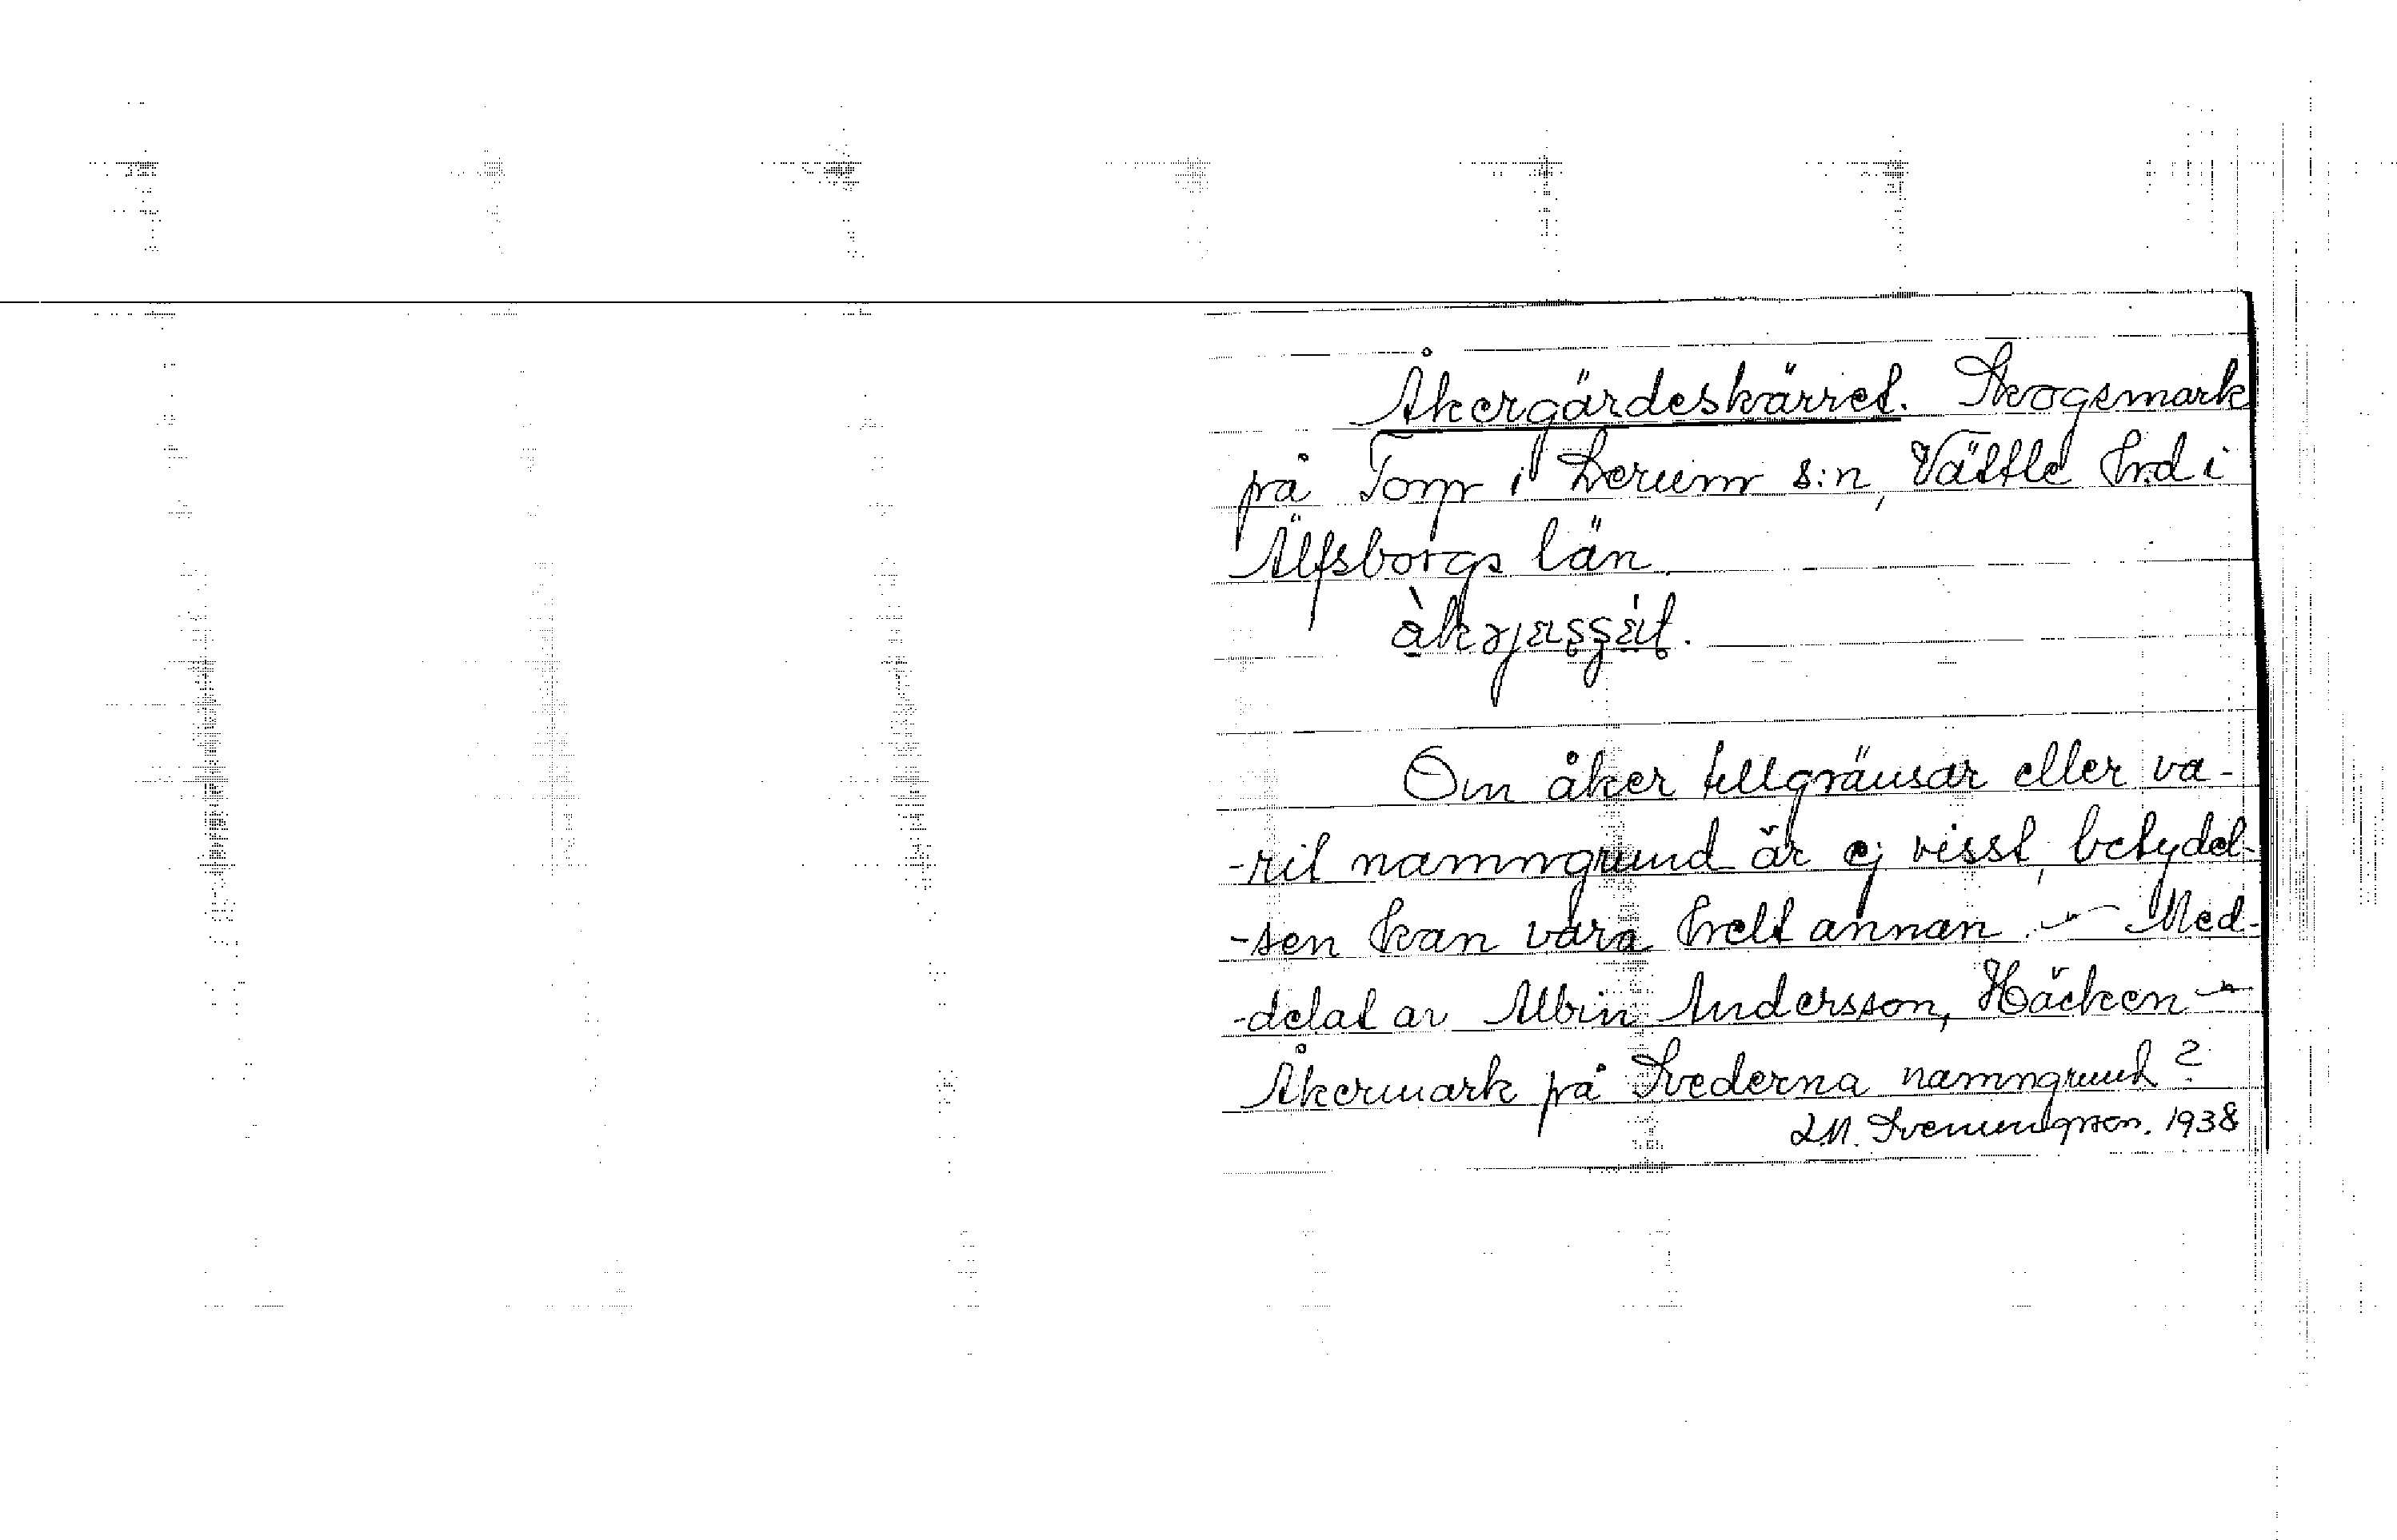 Åkergärdeskärret. Skogsmark
på Torp i Lerums s:n, Vättle hd i
Älfsborgs län.
Om åker tillgränsar eller va-
-rit namngrund är ej visst, betydel-
-sen kan vara helt annan. - Med-
-delat av Albin Andersson, Häcken -
Åkermark på Svederna namngrund?
L.M. Svenungsson. 1938